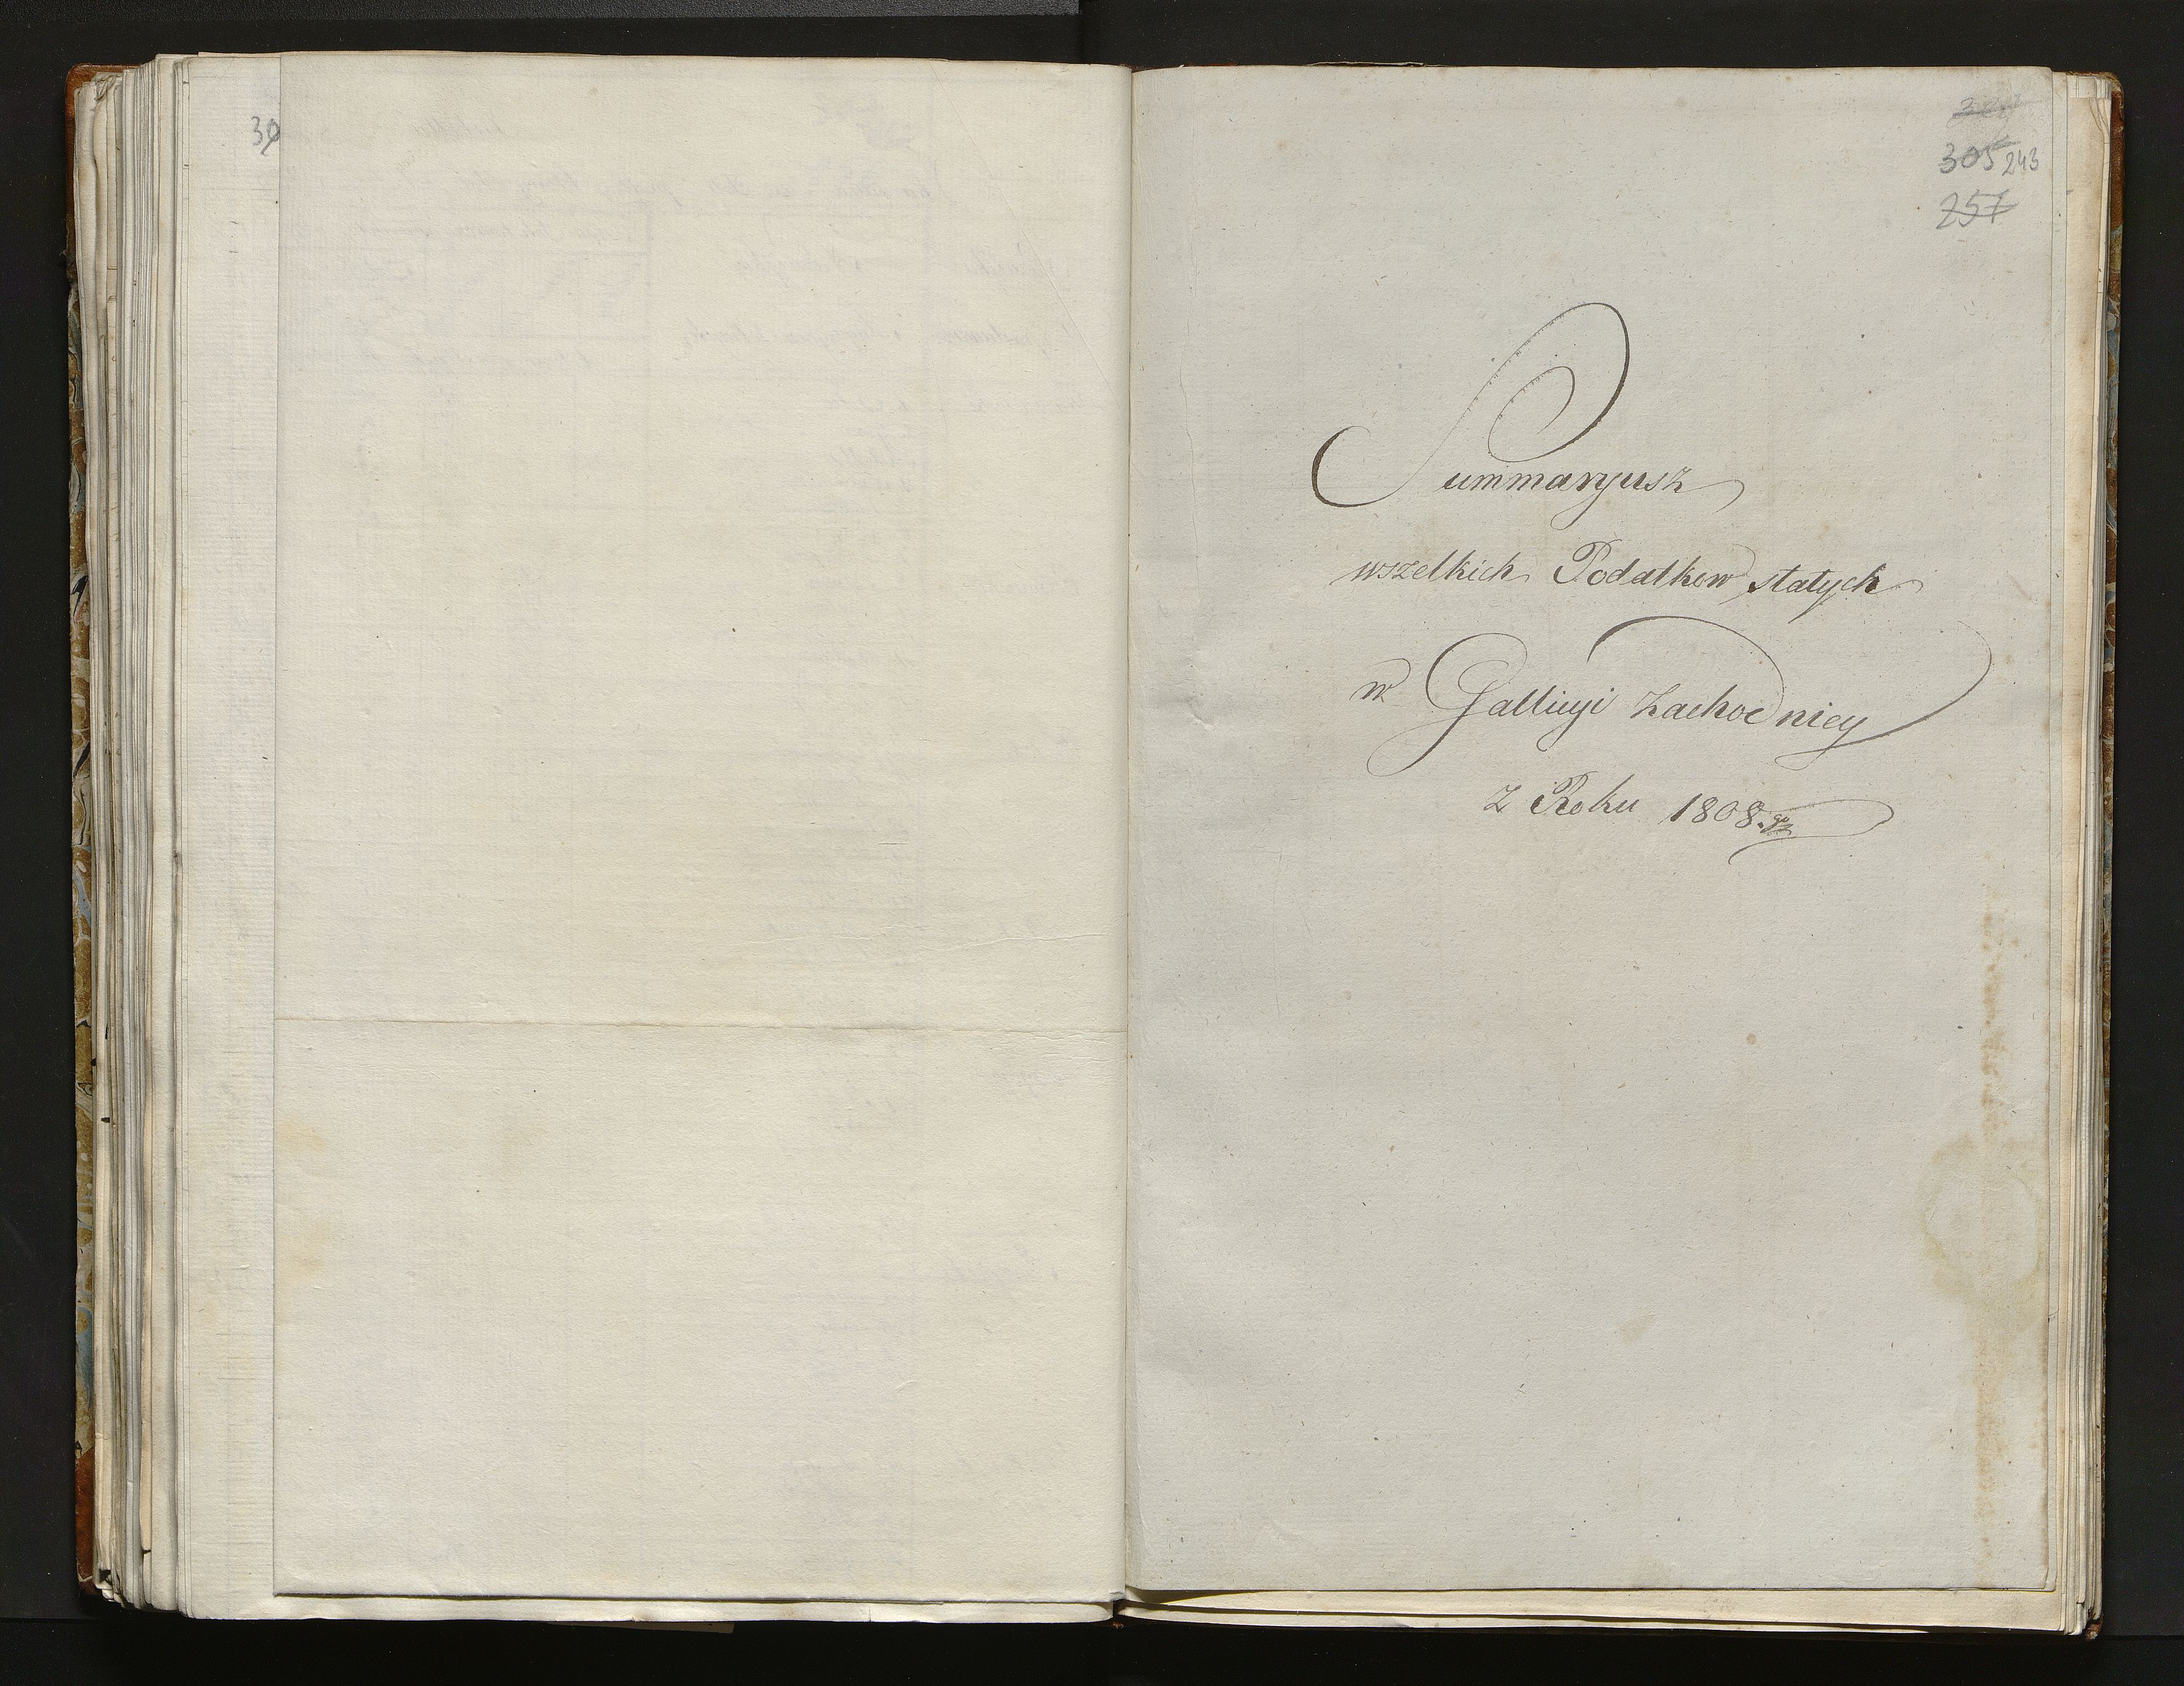 30
305 243
257
Summaryusz
wszelkich Podatkow stałych
w Gallicyi Zachodniey
z Roku 1808.go